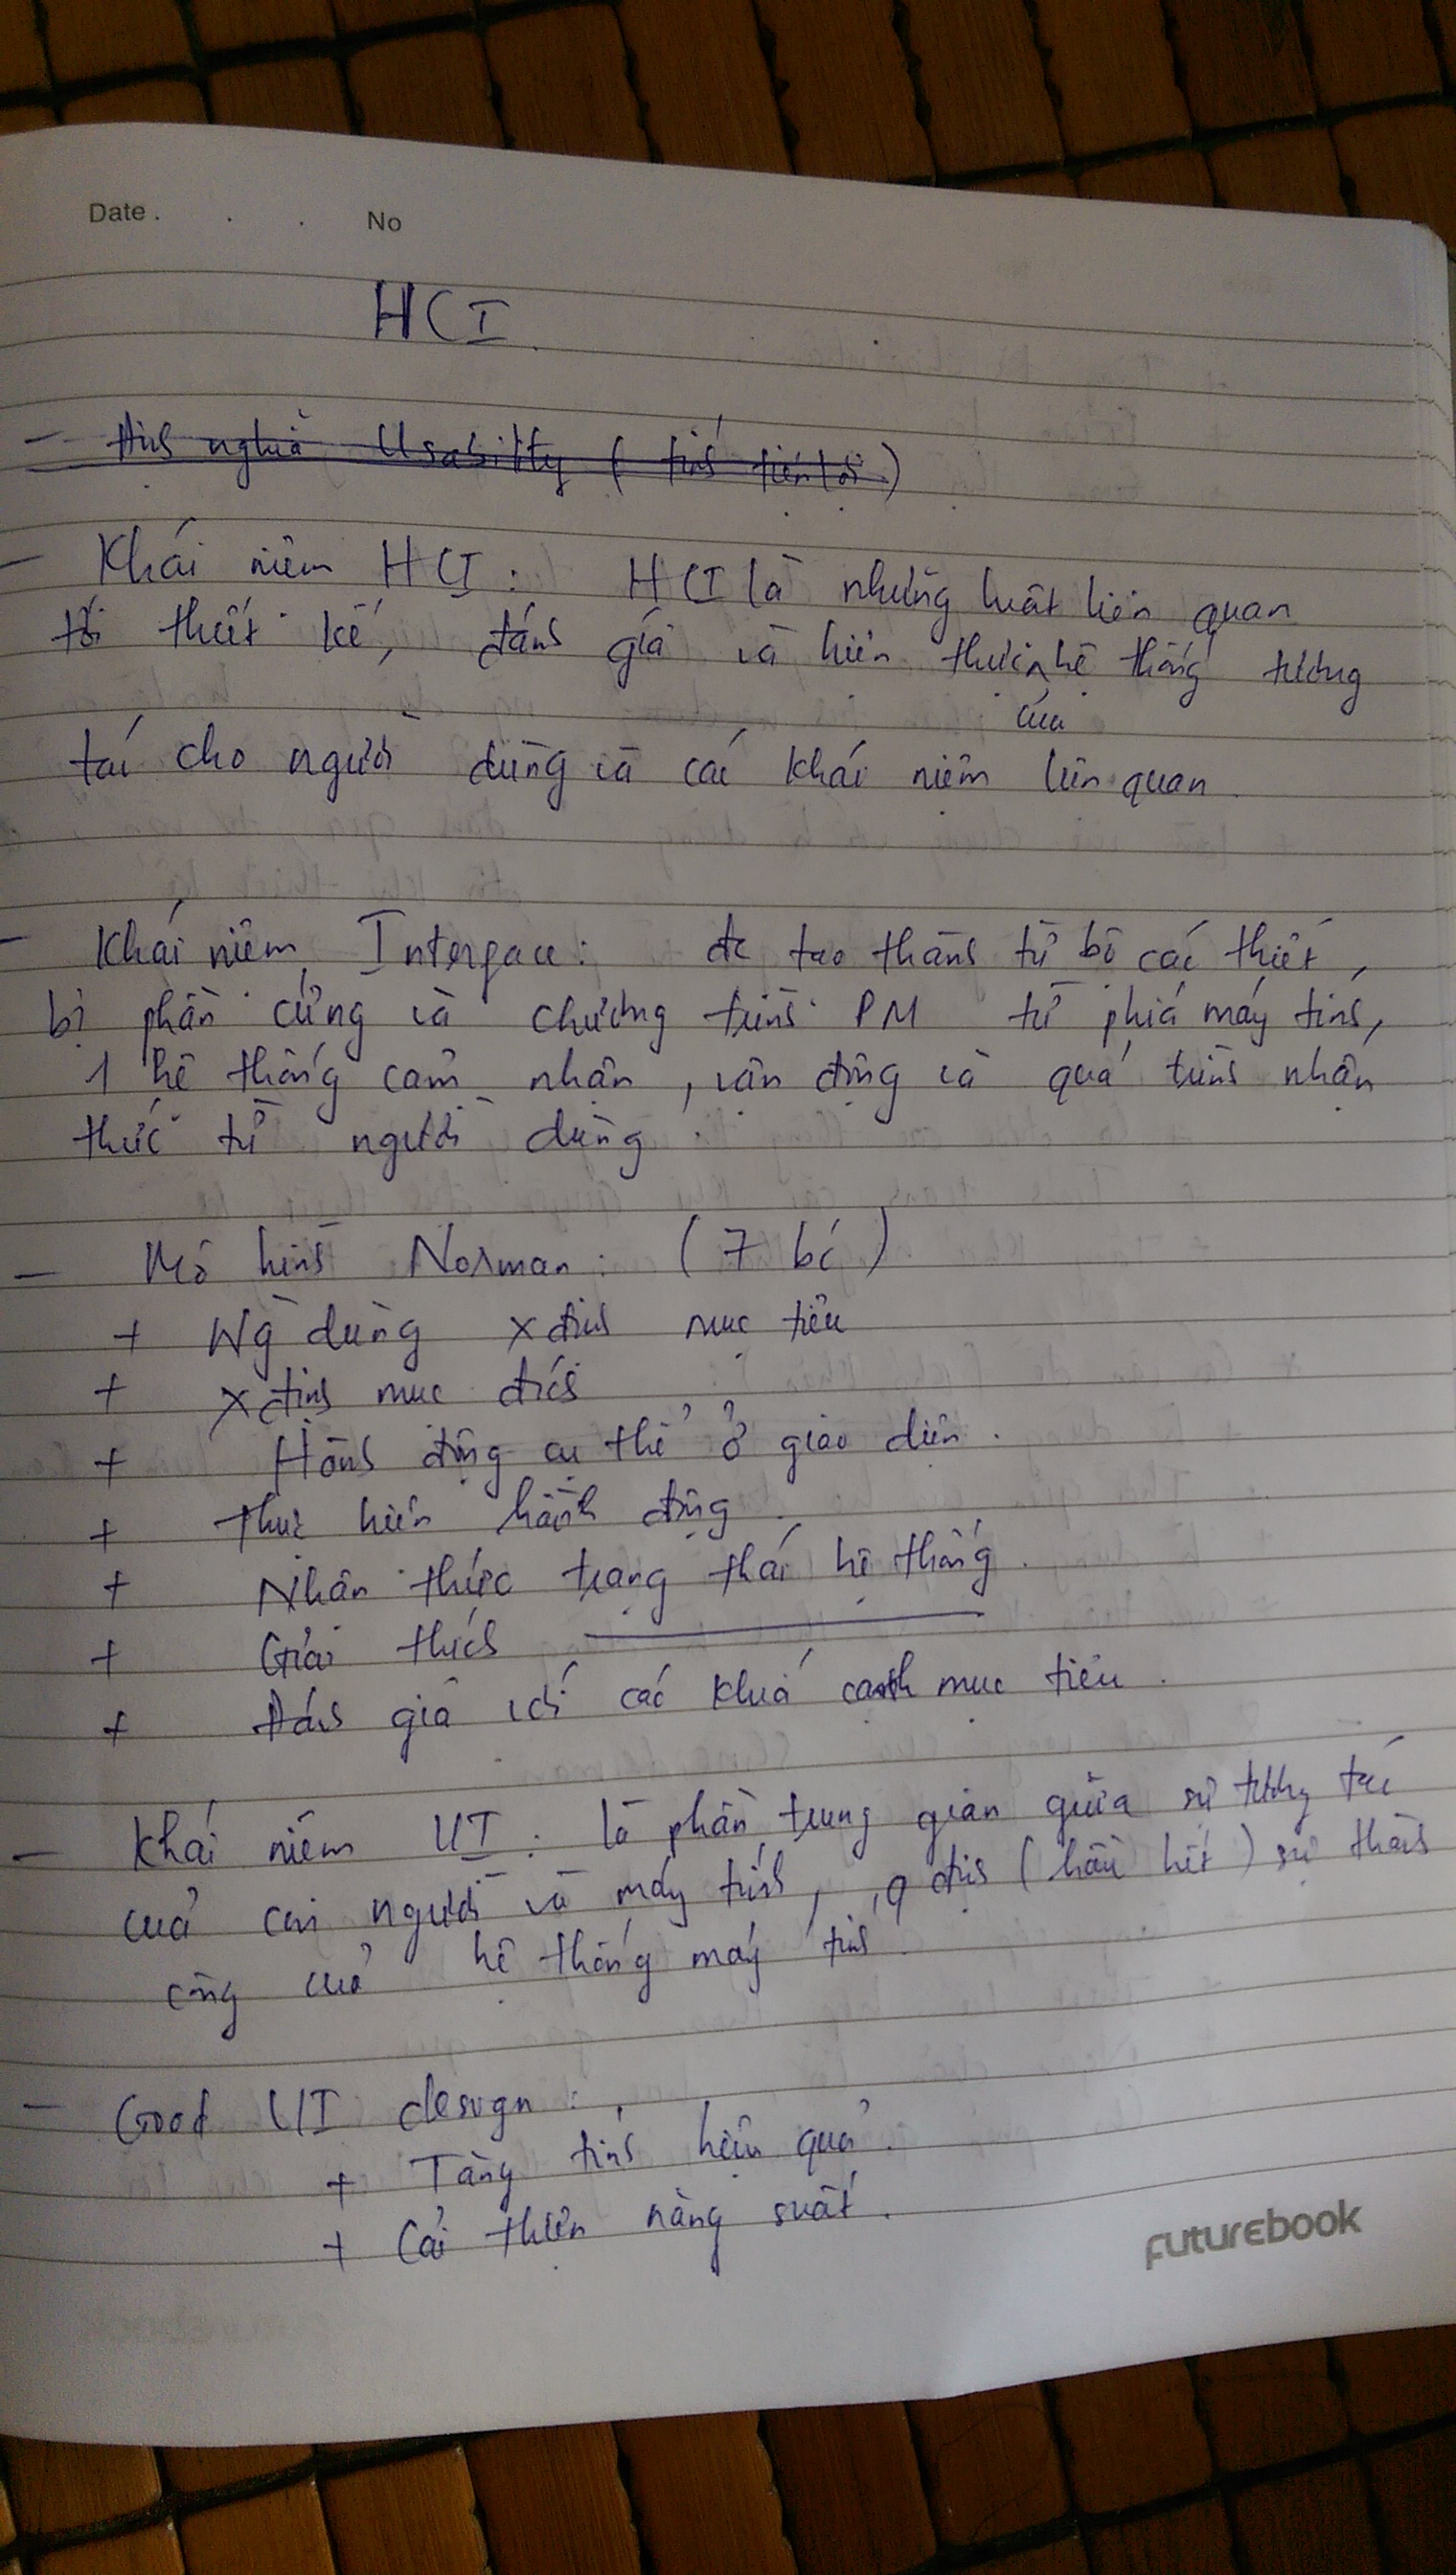 Date . . . No
HCI
- Định nghĩa Usability ( tính tiện lợi )
- Khái niệm HCI : HCI là những luật liên quan
tới thiết kế, đánh giá và hiện thực hệ thống tương
của
tác cho người dùng và các khái niệm liên quan
- Khái niệm Interface : đc tạo thành từ bộ các thiết
bị phần cứng và chương trình PM từ phía máy tính,
1 hệ thống cảm nhận , vận động và quá trình nhận
thức từ người dùng .
- Mô hình Norman : ( 7 bc )
+ Ng dùng xđịnh mục tiêu
+ xđịnh mục đích
+ Hành động cụ thể ở giao diện .
+ Thực hiện hành động .
+ Nhận thức trạng thái hệ thống .
+ Giải thích ————
+ Đánh giá với các khía cạnh mục tiêu .
- Khái niệm UI : là phần trung gian giữa sự tương tác
của con người và máy tính , qđịnh ( hầu hết ) sự thành
công của hệ thống máy tính .
- Good UI design :
+ Tăng tính hiệu quả .
+ Cải thiện năng suất .
Futurebook